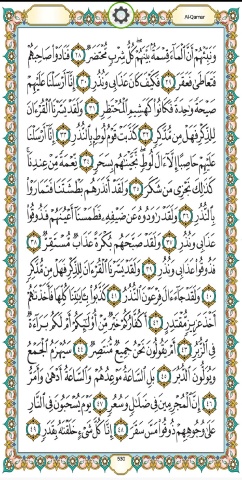 Al-Qamar
وَنَبِّئْهُمْ أَنَّ ٱلْمَآءَ قِسْمَةٌۢ بَيْنَهُمْ ۖ كُلُّ شِرْبٍ مُّحْتَضَرٌ ﴿٢٨﴾ فَنَادَوْا۟ صَاحِبَهُمْ
فَتَعَاطَىٰ فَعَقَرَ ﴿٢٩﴾ فَكَيْفَ كَانَ عَذَابِى وَنُذُرِ ﴿٣٠﴾ إِنَّآ أَرْسَلْنَا عَلَيْهِمْ
صَيْحَةً وَٰحِدَةً فَكَانُوا۟ كَهَشِيمِ ٱلْمُحْتَظِرِ ﴿٣١﴾ وَلَقَدْ يَسَّرْنَا ٱلْقُرْءَانَ
لِلذِّكْرِ فَهَلْ مِن مُّدَّكِرٍ ﴿٣٢﴾ كَذَّبَتْ قَوْمُ لُوطٍۭ بِٱلنُّذُرِ ﴿٣٣﴾ إِنَّآ أَرْسَلْنَا
عَلَيْهِمْ حَاصِبًا إِلَّآ ءَالَ لُوطٍ ۖ نَّجَّيْنَٰهُم بِسَحَرٍ ﴿٣٤﴾ نِّعْمَةً مِّنْ عِندِنَا ۚ
كَذَٰلِكَ نَجْزِى مَن شَكَرَ ﴿٣٥﴾ وَلَقَدْ أَنذَرَهُم بَطْشَتَنَا فَتَمَارَوْا۟
بِٱلنُّذُرِ ﴿٣٦﴾ وَلَقَدْ رَٰوَدُوهُ عَن ضَيْفِهِۦ فَطَمَسْنَآ أَعْيُنَهُمْ فَذُوقُوا۟
عَذَابِى وَنُذُرِ ﴿٣٧﴾ وَلَقَدْ صَبَّحَهُم بُكْرَةً عَذَابٌ مُّسْتَقِرٌّ ﴿٣٨﴾
فَذُوقُوا۟ عَذَابِى وَنُذُرِ ﴿٣٩﴾ وَلَقَدْ يَسَّرْنَا ٱلْقُرْءَانَ لِلذِّكْرِ فَهَلْ مِن مُّدَّكِرٍ
﴿٤٠﴾ وَلَقَدْ جَآءَ ءَالَ فِرْعَوْنَ ٱلنُّذُرُ ﴿٤١﴾ كَذَّبُوا۟ بِـَٔايَٰتِنَا كُلِّهَا فَأَخَذْنَٰهُمْ
أَخْذَ عَزِيزٍ مُّقْتَدِرٍ ﴿٤٢﴾ أَكُفَّارُكُمْ خَيْرٌ مِّنْ أُو۟لَٰٓئِكُمْ أَمْ لَكُم بَرَآءَةٌ
فِى ٱلزُّبُرِ ﴿٤٣﴾ أَمْ يَقُولُونَ نَحْنُ جَمِيعٌ مُّنتَصِرٌ ﴿٤٤﴾ سَيُهْزَمُ ٱلْجَمْعُ
وَيُوَلُّونَ ٱلدُّبُرَ ﴿٤٥﴾ بَلِ ٱلسَّاعَةُ مَوْعِدُهُمْ وَٱلسَّاعَةُ أَدْهَىٰ وَأَمَرُّ
﴿٤٦﴾ إِنَّ ٱلْمُجْرِمِينَ فِى ضَلَٰلٍ وَسُعُرٍ ﴿٤٧﴾ يَوْمَ يُسْحَبُونَ فِى ٱلنَّارِ
عَلَىٰ وُجُوهِهِمْ ذُوقُوا۟ مَسَّ سَقَرَ ﴿٤٨﴾ إِنَّا كُلَّ شَىْءٍ خَلَقْنَٰهُ بِقَدَرٍ ﴿٤٩﴾
530